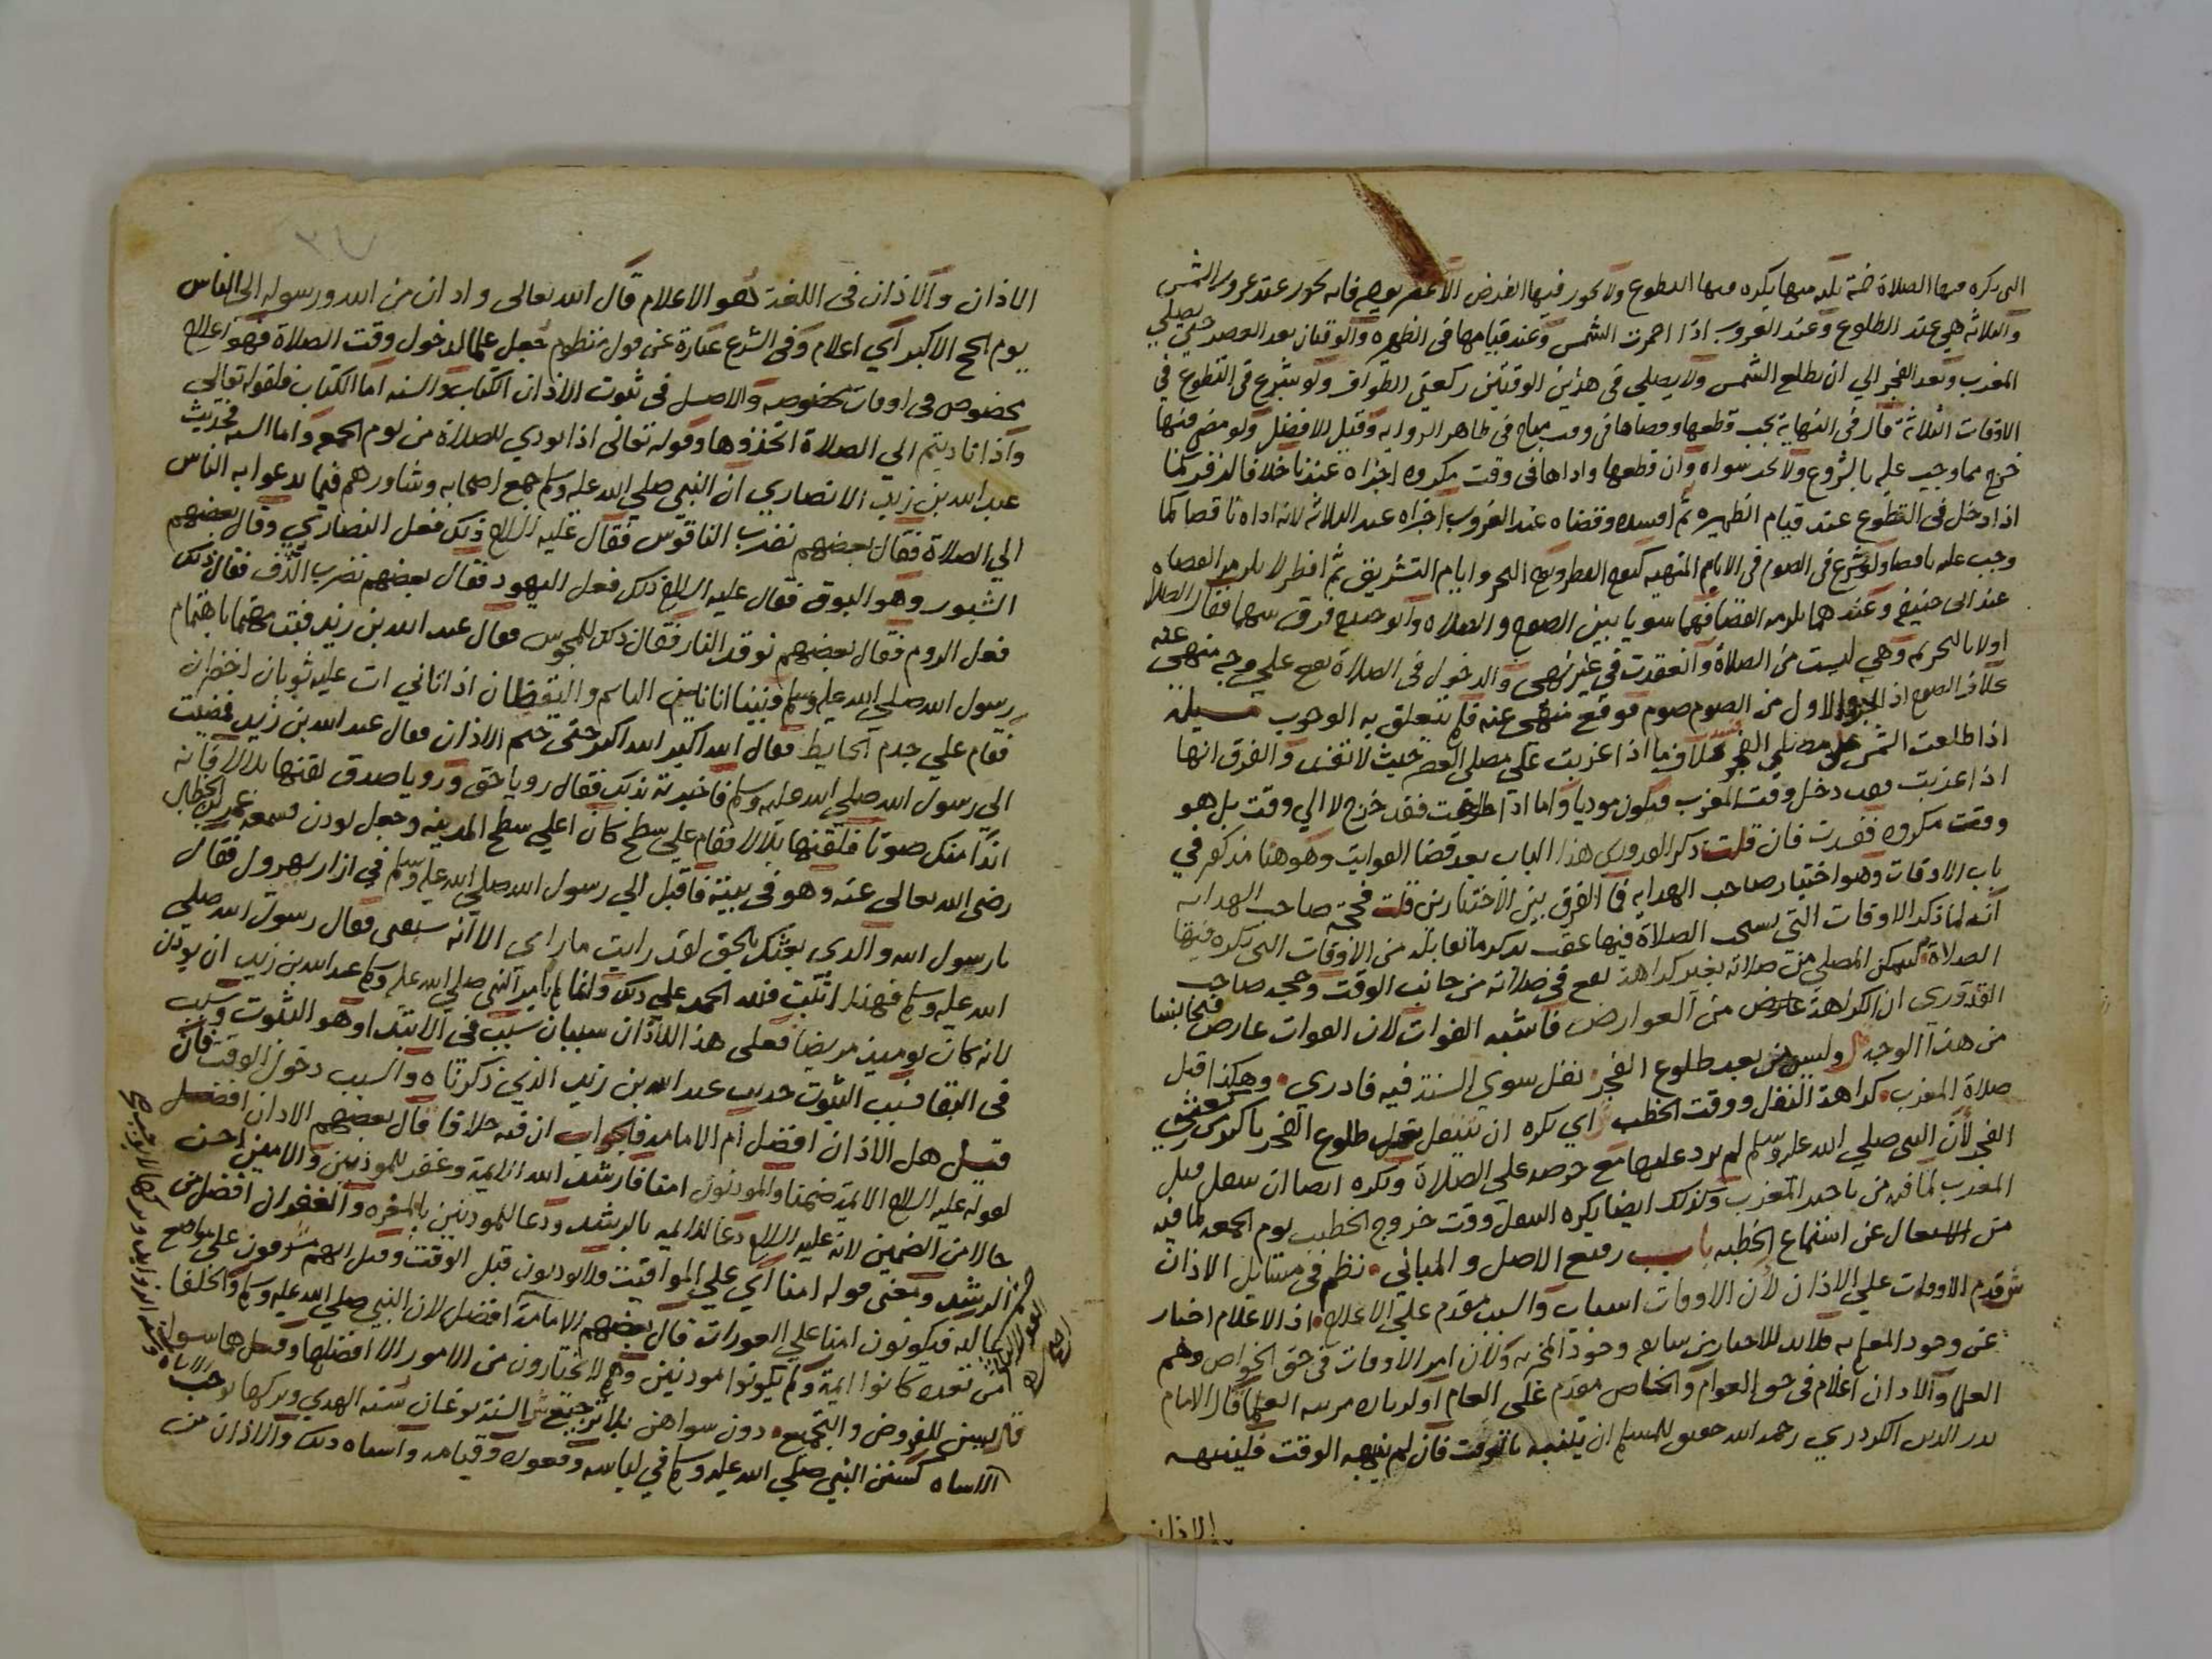 التي يكره فيها الصلاة خمسة ثلثه منها يكره فيها التطوع ولا يجوز فيها الفرض الا عصر يومه فانه يجوز عند غروب الشمس
والثلاثة هي عند الطلوع وعند الغروب اذا احمرت الشمس وعند قيامها في الظهيره والوقتان بعد العصر حتي يصلي
المغرب وبعد الفجر الي ان تطلع الشمس ولا يصلي في هذين الوقتين ركعتي الطواف ولو شرع في التطوع في
الاوقات الثلاثة قال في النهاية يجب قطعها وقضاها في وقت مباح في ظاهر الروايه وقيل الافضل ولو مضي فيها
خرج مما وجب عليه بالشروع ولا يجد سواه وان قطعها واداها في وقت مكروه اجزاه عندنا خلافا لزفر كما
اذا دخل في التطوع عند قيام الظهيره ثم افسده وقضاه عند الغروب اجزاه عند الثلاثة لانه اداه ناقصا كما
وجب عليه ناقصا ولو شرع في الصوم في الايام المنهيه كيوم الفطر ويوم النحر وايام التشريق ثم افطر لا يلزمه القضاه
عند ابي حنيفه وعندهما يلزمه القضا فهما سويا بين الصوم والصلاه وابو حنيفه فرق بينهما فقال الصلاة
اولا بالتحريمه وهي ليست من الصلاة وانعقدت في غير نهي والدخول في الصلاة يقع علي وجه منهي عنه
بخلاف الصوم اذ الجزو الاول من الصوم صوم فوقع منهي عنه فلم يتعلق به الوجوب مسيلة
اذا طلعت الشمس علي مصلي الفجر تفسد خلاف ما اذا غربت علي مصلي العصر حيث لا تفسد والفرق انها
اذا غربت فقد دخل وقت المغرب فيكون موديا واما اذا طلعت فقد خرج لا الي وقت بل هو
وقت مكروه ففسدت فان قلت ذكر القدوري هذا الباب بعد قضا الفوايت وهو هنا مذكور في
باب الاوقات وهو اختيار صاحب الهدايه فما الفرق بين الاختيارين قلت فحجه صاحب الهدايه
انه لما ذكر الاوقات التي يستحب الصلاة فيها عقب بذكر ما يقابله من الاوقات التي يكره فيها
الصلاة ليتمكن المصلي من صلاته بغير كراهة تقع في صلاته من جانب الوقت وحجه صاحب
القدوري ان الكراهة عارض من العوارض فاشبه الفوات لان الفوات عارض فتجانسا
من هذا الوجه وليس من بعد طلوع الفجر نفل سوي السنة فيه فادري وهكذا قبل
صلاة المغرب كراهة النفل ووقت الخطب ش اي يكره ان يتنفل بعد طلوع الفجر باكثر من ركعتي
الفجر لأن النبي صلي الله عليه وسلم لم يزد عليها مع حرصه علي الصلاة ويكره ايضا ان يتنفل قبل
المغرب لما فيه من تاخير المغرب وكذلك ايضا يكره التنفل وقت خروج الخطيب يوم الجمعه لما فيه
من الاشتغال عن استماع الخطبه باب رفيع الاصل والمباني نظم في مسايل الاذان
ش قدم الاوقات علي الاذان لأن الاوقات اسباب والسبب مقدم علي الاعلام اذ الاعلام اخبار
عن وجود المعلم به فلابد للاخبار من سابقه وجود المخبر به ولان امر الاوقات في حق الخواص وهم
العلما والاذان اعلام في حق العوام والخاص مقدم علي العام او لزيادة مرتبه العلما قال الامام
بدر الدين الكردري رحمه الله حقيق للمسلم ان يتنبه بالوقت فان لم ينبهه الوقت فلينبهه
الاذان
الاذان والاذان في اللغة هو الاعلام قال الله تعالى واذان من الله ورسوله الى الناس
يوم الحج الاكبر اي اعلام وفي الشرع عبارة عن قول منظوم جعل علما لدخول وقت الصلاة فهو اعلام
مخصوص في اوقات مخصوصه والاصل في ثبوت الاذان الكتاب والسنه اما الكتاب فلقوله تعالي
واذا ناديتم الي الصلاة اتخذوها وقوله تعالى اذا نودي للصلاة من يوم الجمعه واما السنه فحديث
عبد الله بن زيد الانصاري ان النبي صلي الله عليه وسلم جمع اصحابه وشاورهم فيما يدعوا به الناس
الي الصلاة فقال بعضهم نضرب الناقوس فقال عليه السلام ذلك فعل النصاري وقال بعضهم
الشبور وهو البوق فقال عليه السلام ذلك فعل اليهود فقال بعضهم نضرب الدف فقال ذلك
فعل الروم فقال بعضهم نوقد النار فقال ذلك للمجوس فقال عبد الله بن زيد فبت مهتما باهتمام
رسول الله صلي الله عليه وسلم فبينا انا بين النايم واليقظان اذ اتاني ات عليه ثوبان اخضران
فقام علي جدم الحايط فقال الله اكبر الله اكبر حتي ختم الاذان فقال عبد الله بن زيد فمضيت
الي رسول الله صلي الله عليه وسلم فاخبرته بذلك فقال رويا حق ورويا صدق لقنها بلالا فانه
اندا منك صوتا فلقنتها بلالا فقام علي سطح كان اعلي سطح المدينه وجعل يوذن فسمعه عمر بن الخطاب
رضي الله تعالى عنه وهو في بيته فاقبل الي رسول الله صلي الله عليه وسلم في ازار يهرول فقال
يا رسول الله والذي بعثك بالحق لقد رايت ما راي الا انه سبقني فقال رسول الله صلي
الله عليه وسلم فهذا اثبت فلله الحمد علي ذلك وانما لم يامر النبي صلي الله عليه وسلم عبد الله بن زيد ان يوذن
لانه كان يوميذ مريضا فعلى هذا للاذان سببان سبب في الابتدا وهو الثبوت وسبب
في البقا فسبب الثبوت حديث عبد الله بن زيد الذي ذكرناه والسبب دخول الوقت فان
قيل هل الاذان افضل ام الامامه فالجواب ان فيه خلافا قال بعضهم الاذان افضل
لقوله عليه السلام الايمة ضمنا والموذنون امنا فارشد الله الايمة وغفر للموذنين والامين احسن
حالا من الضمين لانه عليه السلام دعا للايمه بالرشد ودعا للموذنين بالمغفره والغفران افضل من
الرشد ومعنى قوله امنا اي علي المواقيت فلا يوذنون قبل الوقت وقيل انهم مشرفون علي مواضع
عاليه فيكونون امنا علي العورات قال بعضهم الامامة افضل لان النبي صلي الله عليه وسلم والخلفا
من بعده كانوا ايمة ولم يكونوا موذنين وهم لا يختارون من الامور الا افضلها وقيل هما سوا
قال يسن للفروض والتجميع دون سواهن بلا ترجيع ش السنة نوعان سنه الهدي وتركها يوجب
الاساه كسنن النبي صلي الله عليه وسلم في لباسه وقعوده وقيامه واشباه ذلك والاذان من